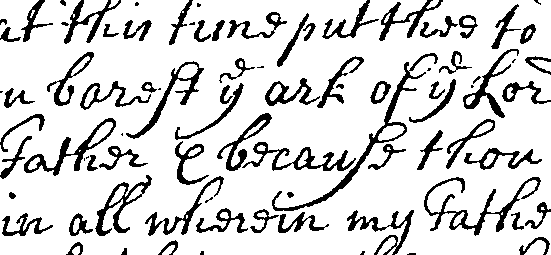 at this time put thee to
u barest yͤ ark of yͤ Lor
Father, & because thou
in all wherein my Fathe